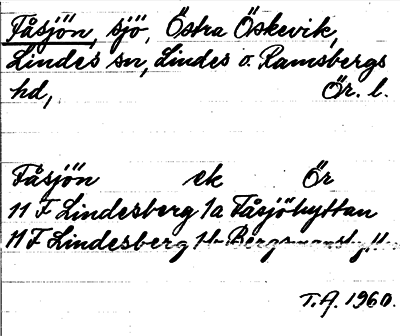 Fåsjön, sjö, Östra Öskevik,
Lindes sn, Lindes o. Ramsbergs
hd, Ör. l.
Fåsjön ek Ör
11 F Lindesberg 1a Fåsjöhyttan
11 F Lindesberg 1b
T.A. 1960.